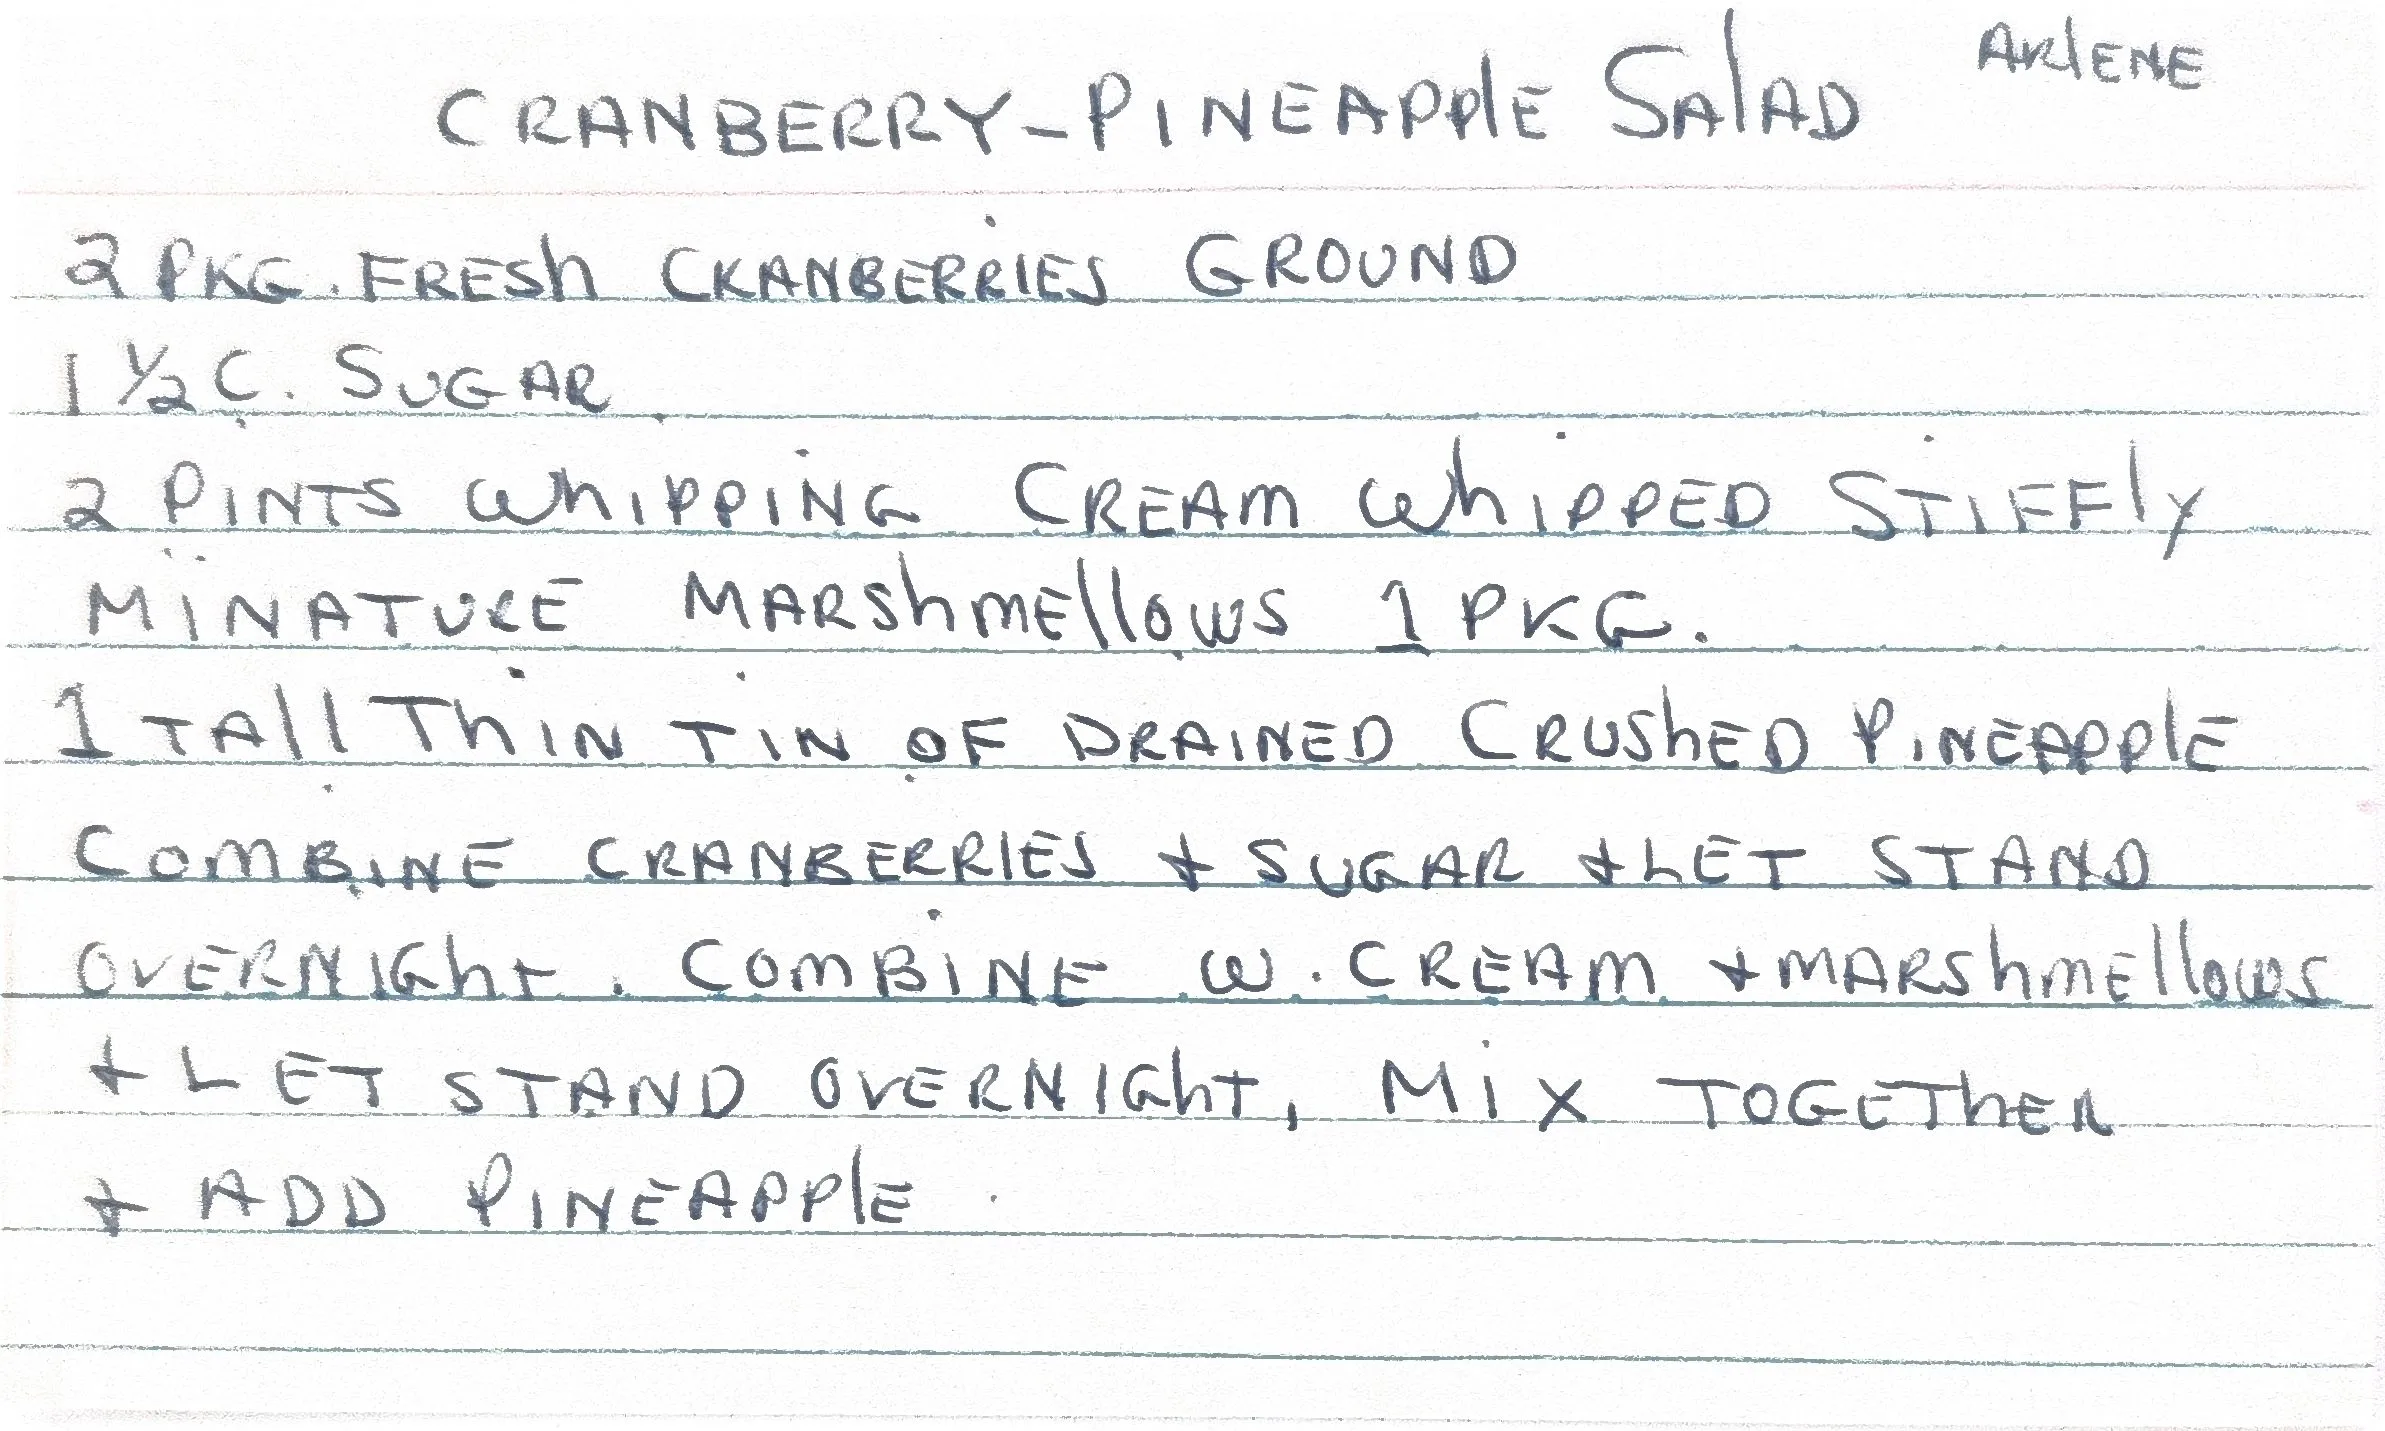 CRANBERRY-PINEAPPlE SAlAD ARlENE
2 PKG. FRESh CRANBERRIES GROUND
1 1/2 C. SUGAR
2 PINTS WhIPPING CREAM WhIPPED STIFFly
MINATURE MARShmEllOWS 1 PKG.
1 TAll ThIN TIN OF DRAINED CRUShED PINEAPPlE
COMBINE CRANBERRIES + SUGAR + LET STAND
OVERNIGhT. COMBINE W. CREAM + MARShmEllOWS
+ LET STAND OVERNIGhT, MiX TOGEThER
+ ADD PINEAPPlE